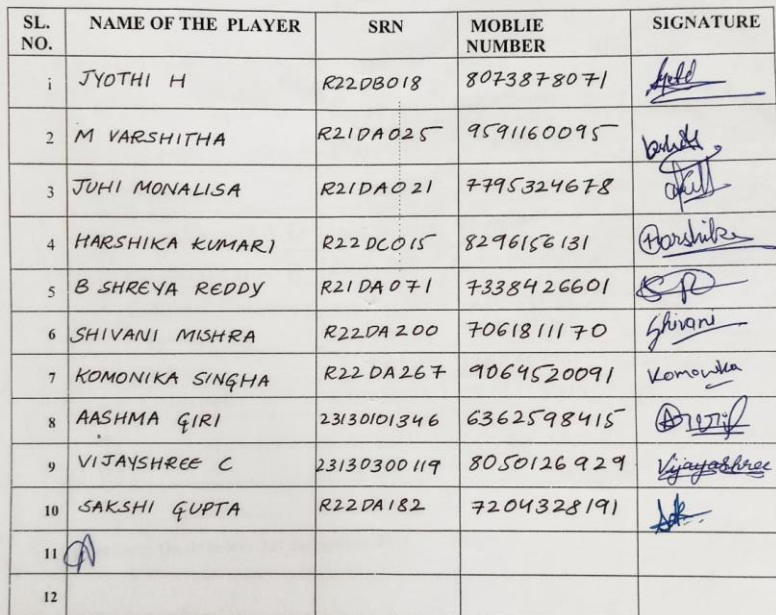 SL. NO. NAME OF THE PLAYER SRN MOBLIE NUMBER SIGNATURE
i JYOTHI H R22DB018 8073878071
2 M VARSHITHA R21DA025 9591160095
3 JUHI MONALISA R21DA021 7795324678
4 HARSHIKA KUMARI R22DC015 8296156131 Harshika
5 B SHREYA REDDY R21DA071 7338426601
6 SHIVANI MISHRA R22DA200 7061811170 Shivani
7 KOMONIKA SINGHA R22DA267 9064520091 Komonika
8 AASHMA GIRI 23130101346 6362598415
9 VIJAYSHREE C 23130300119 8050126929 Vijayashree
10 SAKSHI GUPTA R22DA182 7204328191
11
12